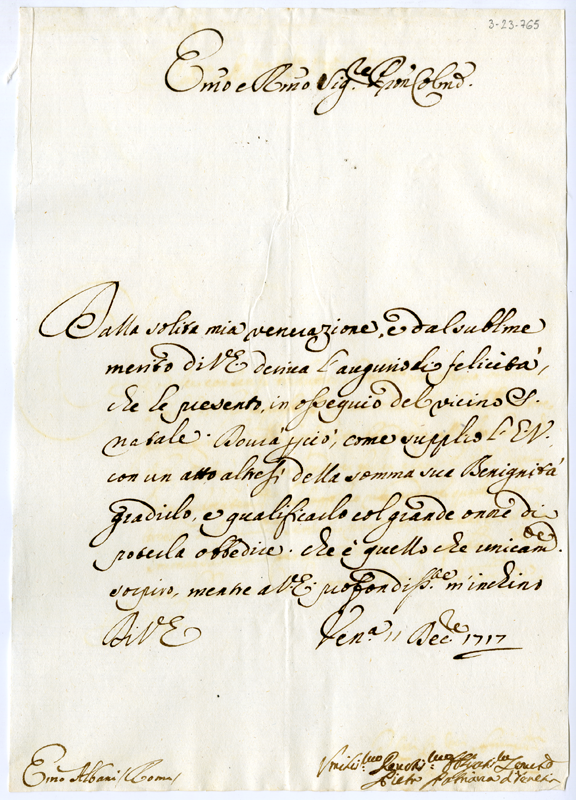 3-23-765
Emo e Rmo Sig.re Pron Colmo.
Dalla solita mia venerazione, e dal sublime
merito di V.E. deriva l'augurio di felicità,
che le presento, in ossequio del vicino S.
natale. Dourà perciò, come supplico l'E.V.
con un atto altresì della somma sua Benignità
gradirlo, e qualificarlo col grande onore di
poterla obbedire. che è quello che unicam.te
sospiro, mentre a V.E. profondiss.te m'inchino
Di V.E.
Ven.a 11 Dec.re 1717
Emo Albani / Roma /
Umiliss.mo Obligatiss.mo
Pietro Patriarca di Venezia